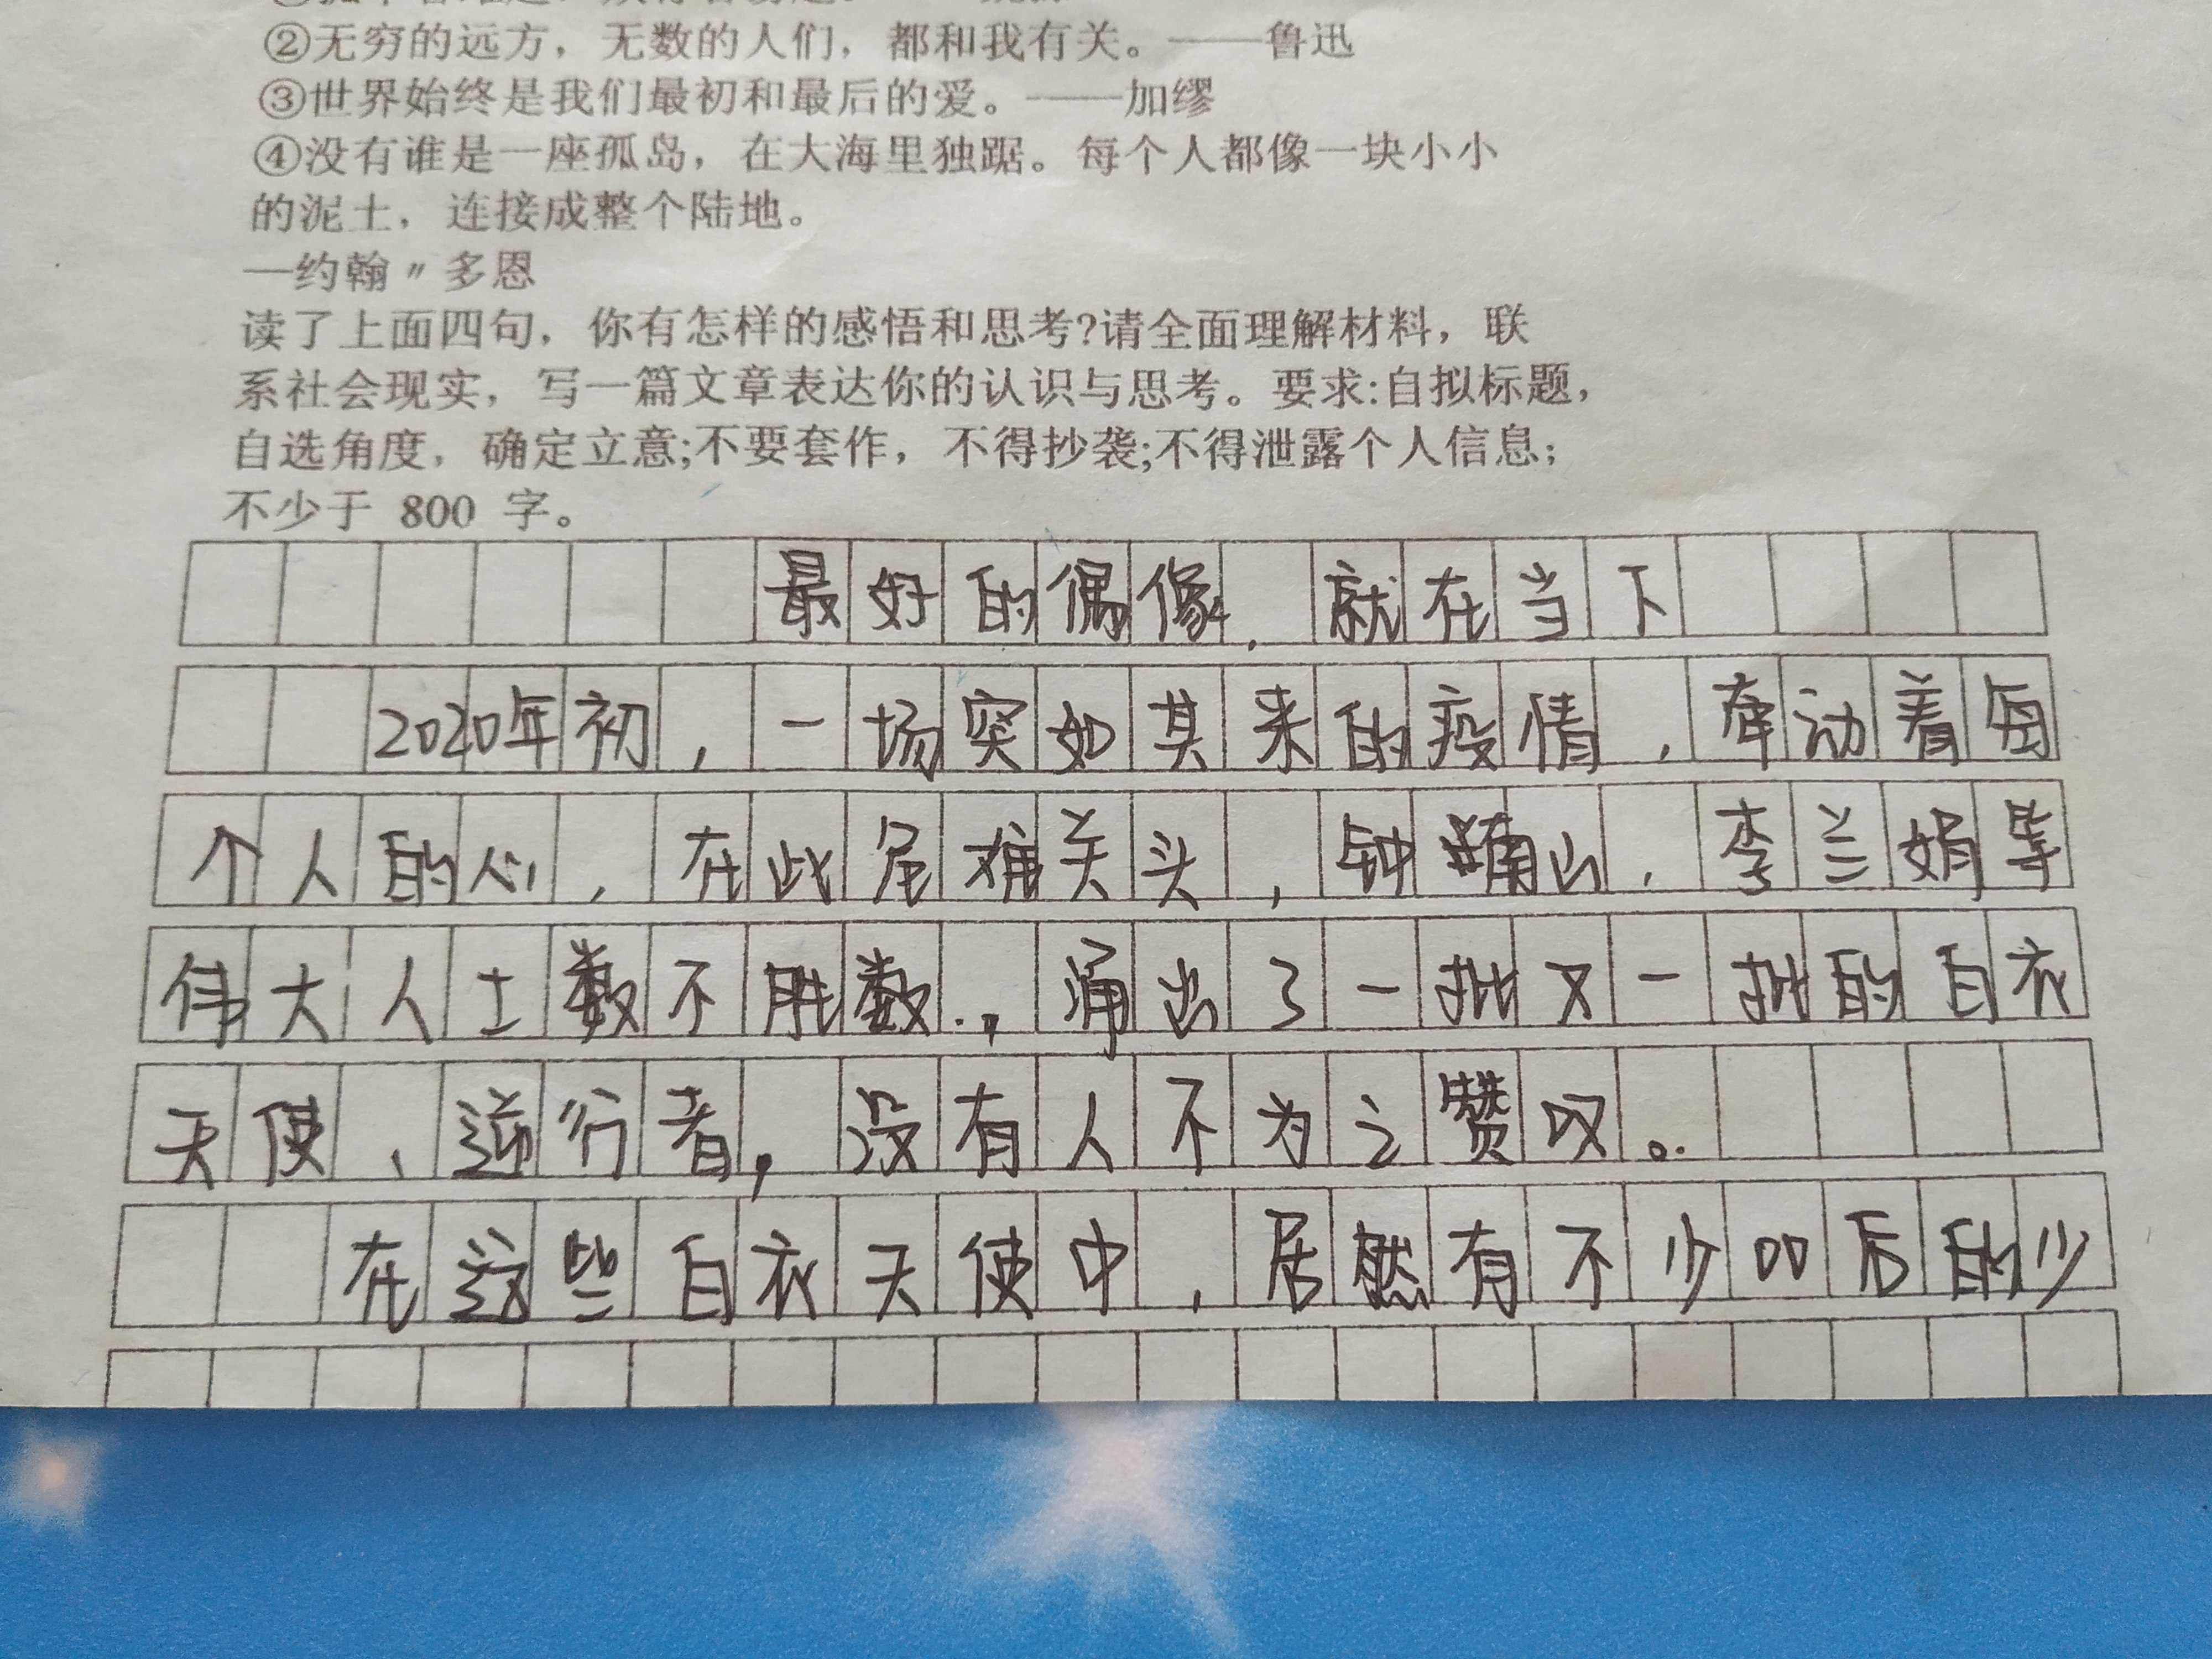 ②无穷的远方，无数的人们，都和我有关。——鲁迅
③世界始终是我们最初和最后的爱。——加缪
④没有谁是一座孤岛，在大海里独踞。每个人都像一块小小
的泥土，连接成整个陆地。
—约翰〃多恩
读了上面四句，你有怎样的感悟和思考?请全面理解材料，联
系社会现实，写一篇文章表达你的认识与思考。要求:自拟标题，
自选角度，确定立意;不要套作，不得抄袭;不得泄露个人信息；
不少于 800 字。
最好的偶像，就在当下
2020年初，一场突如其来的疫情，牵动着每
个人的心，在此危难关头，钟南山、李兰娟等
伟大人士数不胜数，涌出了一批又一批的白衣
天使、逆行者，没有人不为之赞叹。
在这些白衣天使中，居然有不少00后的少